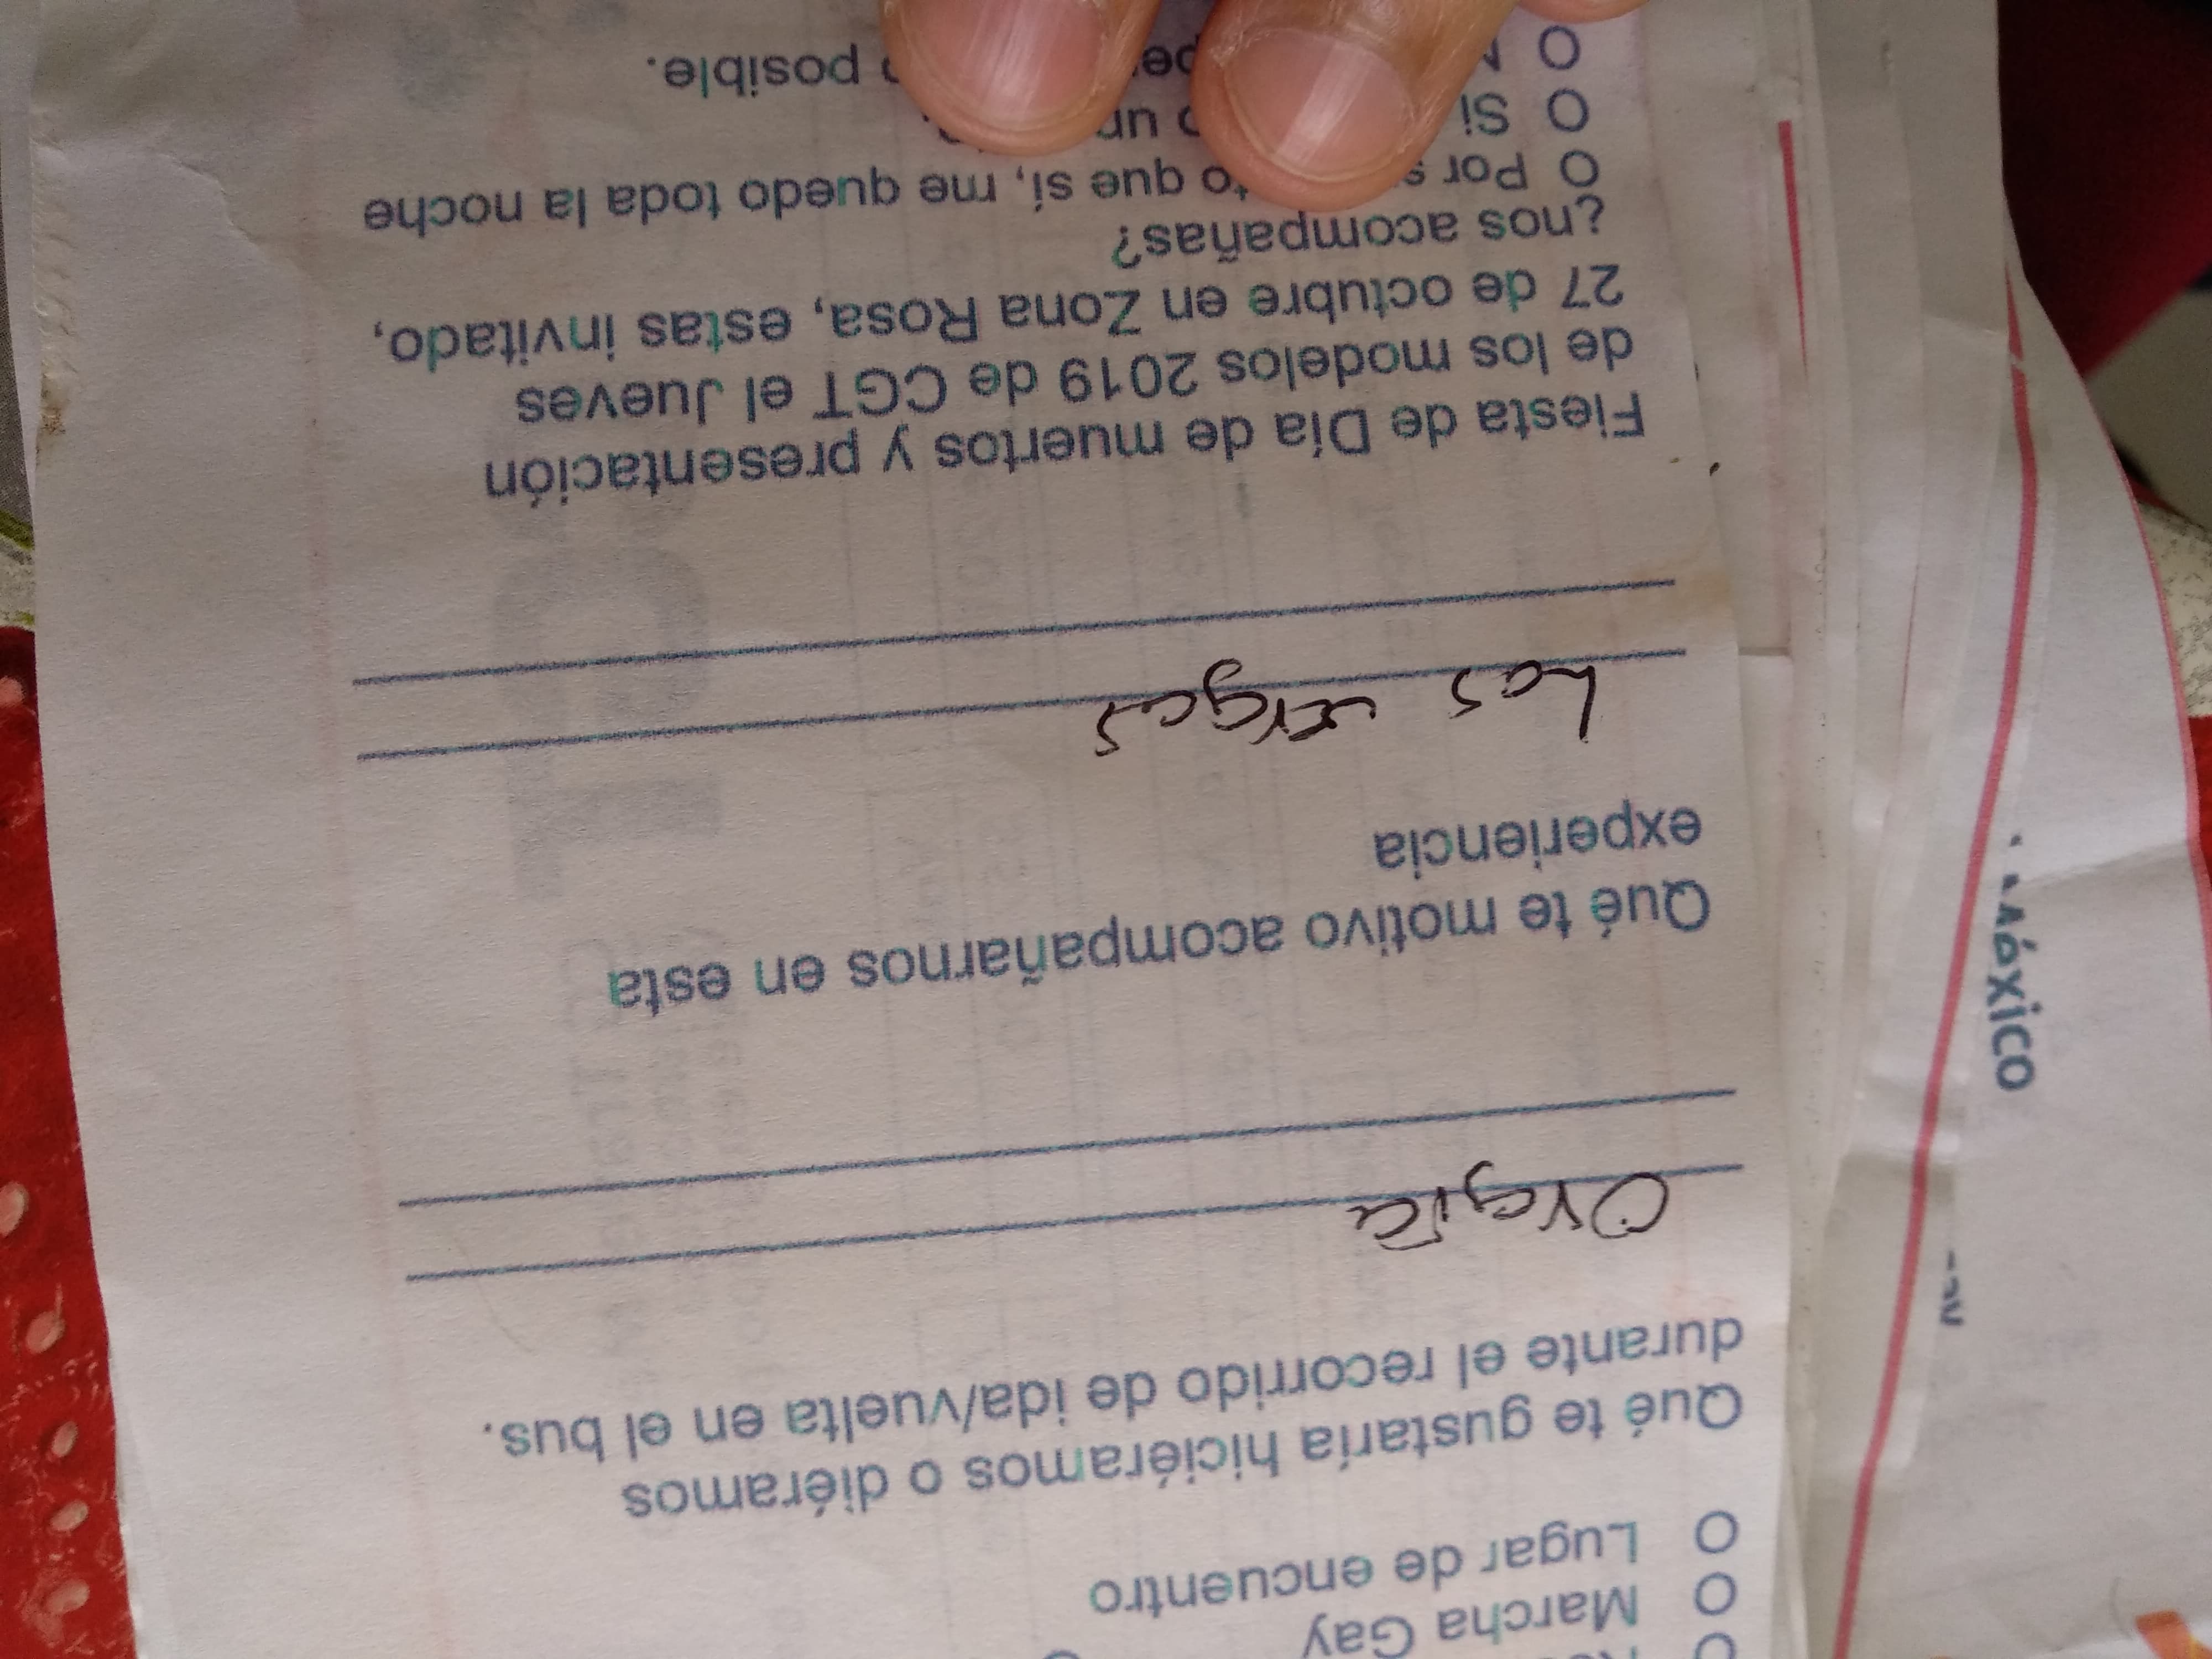 Marcha Gay
Lugar de encuentro
Qué te gustaría hiciéramos o diéramos
durante el recorrido de ida/vuelta en el bus.
Oregia
Qué te motivo acompañarnos en esta
experiencia
Las vergas
Fiesta de Día de muertos y presentación
de los modelos 2019 de CGT el Jueves
27 de octubre en Zona Rosa, estas invitado,
¿nos acompañas?
Por que sí, me quedo toda la noche
Si un
posible.
MéXICO